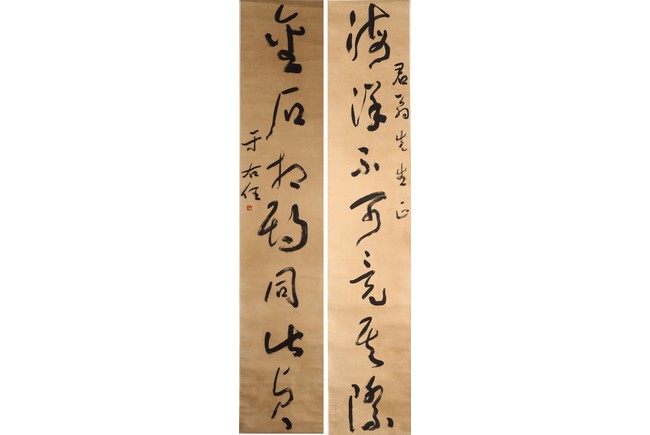 君翁先生正
海深不可竟其際
金石相期同此貞
于右任